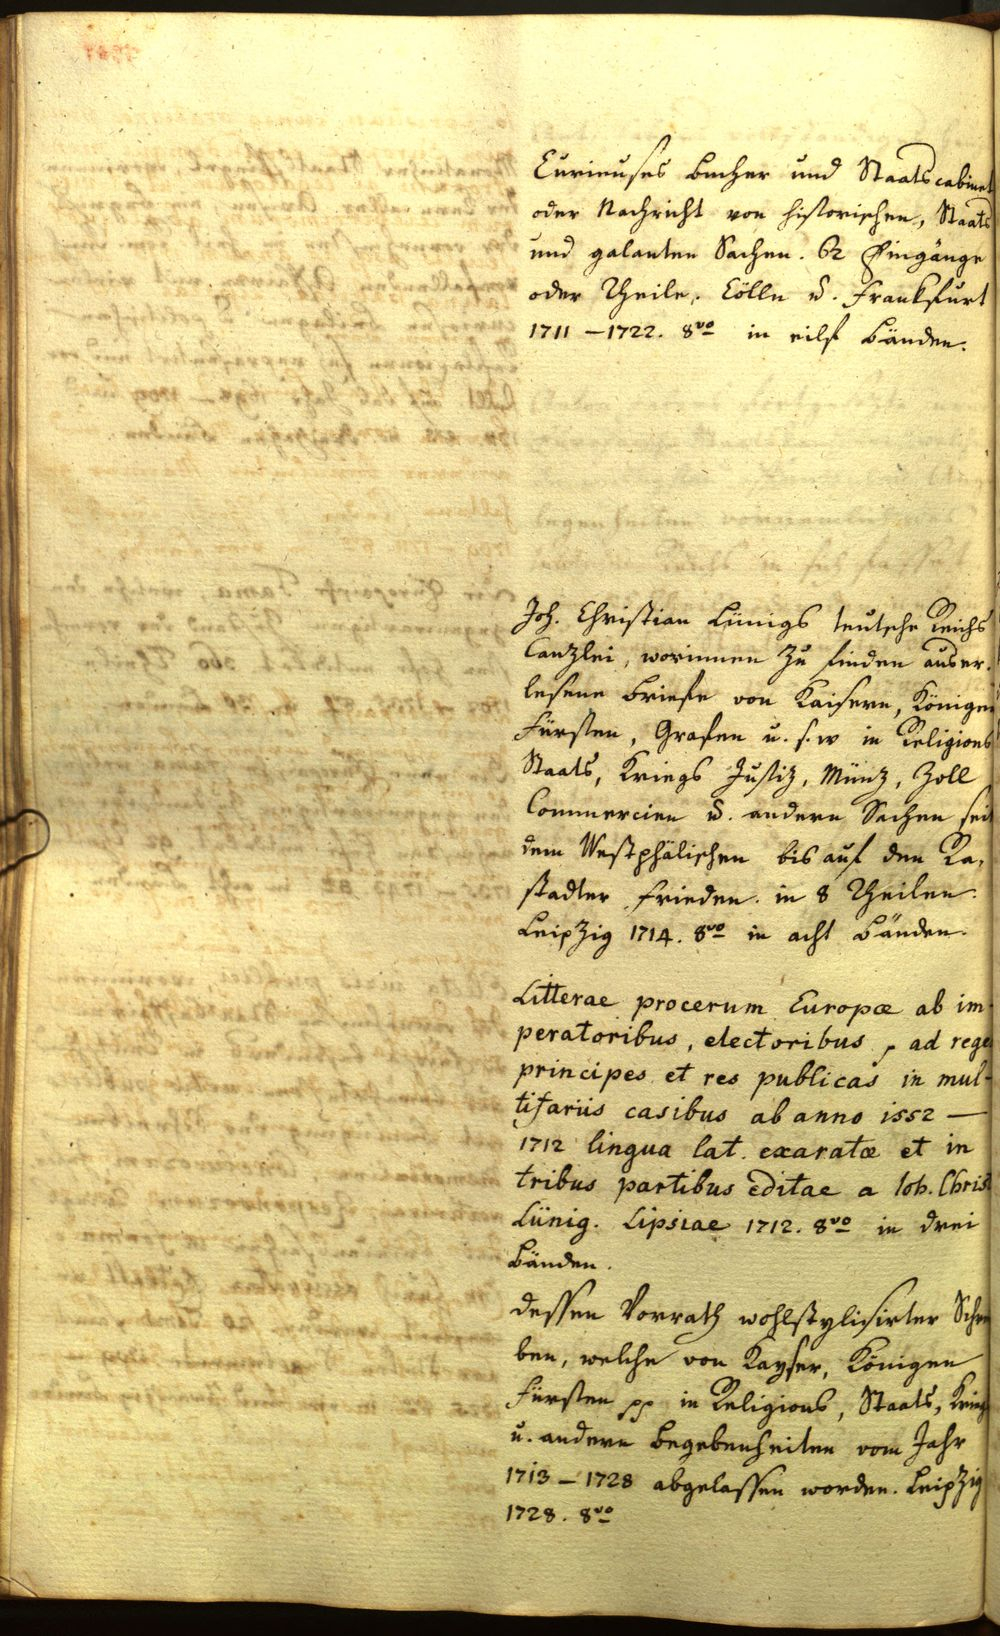 Curieuses Bucher und Staatscabinet
oder Nachricht von historischen, Staats
und galanten Sachen. 62 Eingänge
oder Theile. Cölln u. Frankfurt
1711 – 1722. 8vo in eilf Bänden.
Joh. Christian Lünigs teutsche Reichs
Canzlei, worinnen zu finden auser-
lesene Briefe von Kaisern, Königen
Fürsten, Grafen u. s. w in Religions
Staats, Kriegs Justiz, Münz, Zoll
Commercien u. andern Sachen seit
dem Westphälischen bis auf den Ra-
stadter Frieden. in 8 Theilen.
Leipzig 1714. 8vo in acht Bänden.
Litterae procerum Europæ ab im-
peratoribus, electoribus, ad rege
principes et res publicas in mul-
tifariis casibus ab anno 1552 —
1712 lingua lat. exaratæ et in
tribus partibus editae a Ioh. Christ
Lünig. Lipsiae 1712. 8vo in drei
Bänden.
dessen Vorrath wohlstylisirter Schrei
ben, welche von Kayser, Königen
Fürsten pp in Religions, Staats, Kriegs
u. andern Begebenheiten vom Jahr
1713 – 1728 abgelassen worden. Leipzig
1728. 8vo